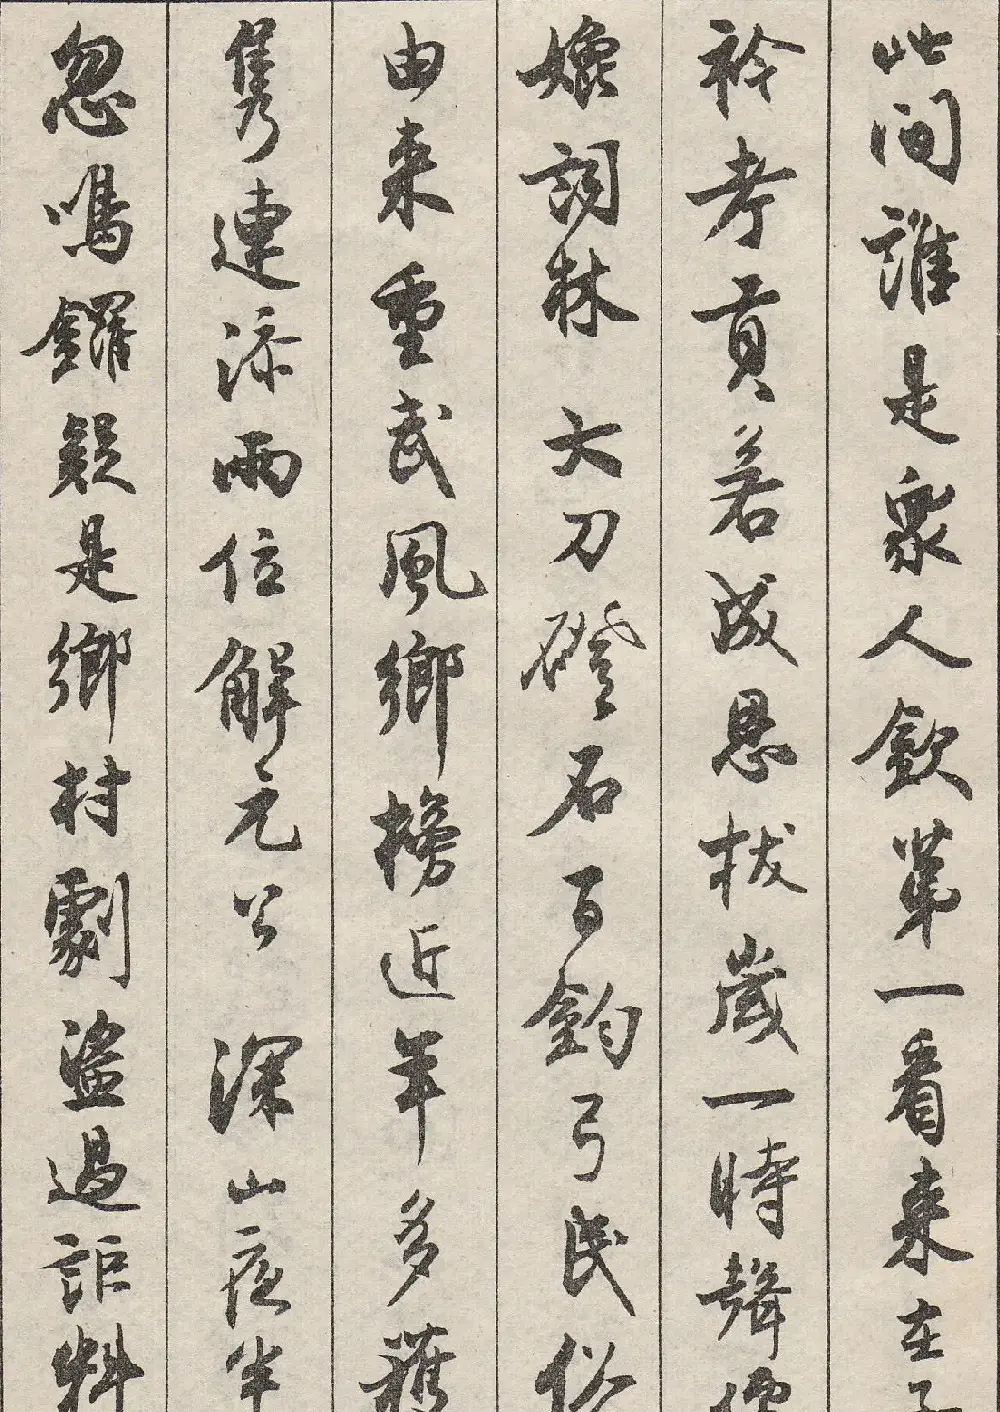 此间誰是衆人欽第一看来在子
衿考貢若成恩拔歲一時聲價
嬓詞林 大刀磴石百鈞弓民俗
由来重武風鄉榜近年多獲
隽連添兩位解元公 深山夜半
忽鳴鑼疑是鄉村劇盜過詎料